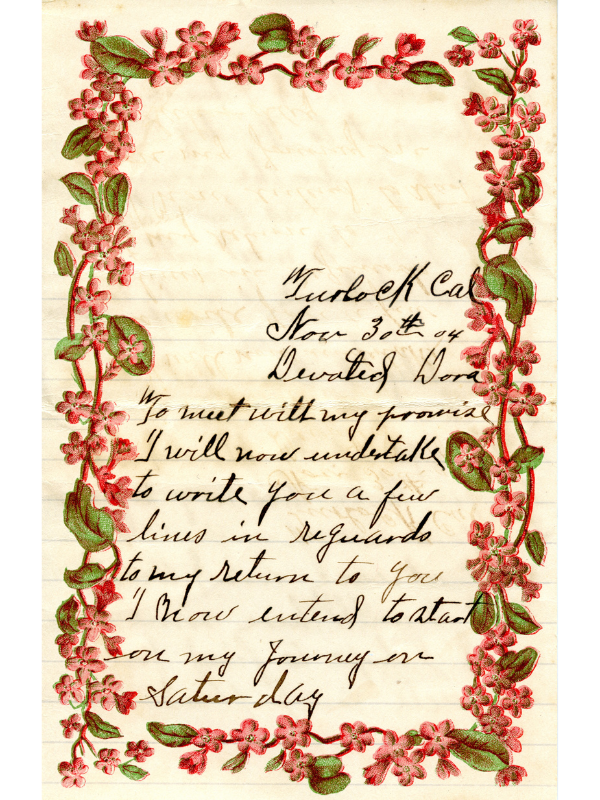 Turlock Cal
Nov 30th 04
Devoted Dora
To meet with my promise
I will now undertake
to write you a few
lines in reguards
to my return to you
I now entend to start
on my Journey on
Saturday